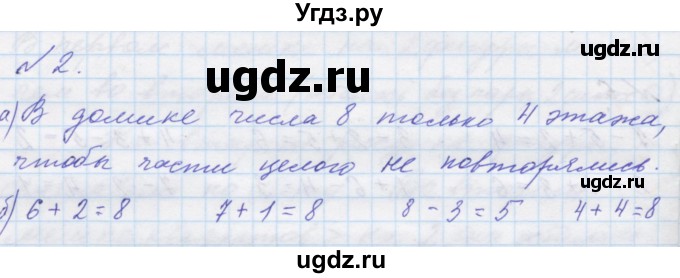 Угдз.ру
№ 2.
ugdz.ru
а) В домике числа 8 только 4 этажа,
ugdz.ru
чтобы части целого не повторялись.
ugdz.ru
б) 6 + 2 = 8 7 + 1 = 8 8 - 3 = 5 4 + 4 = 8
Угдз.ру